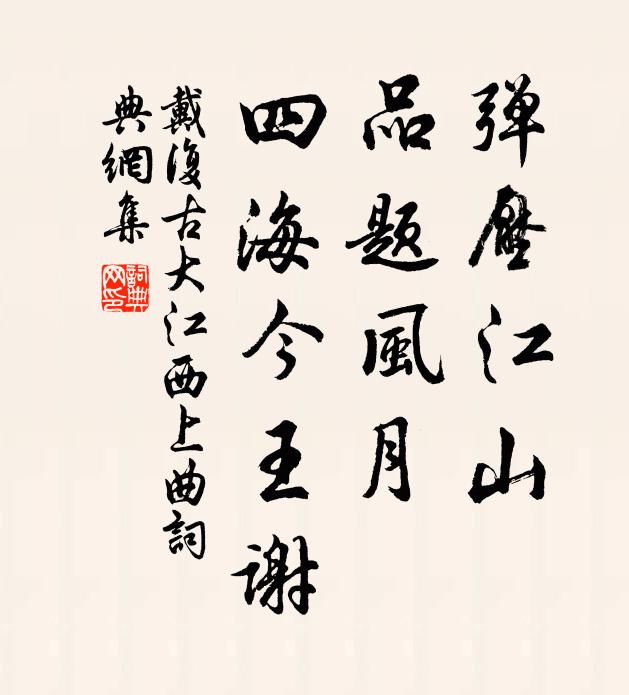 弹壓江山
品题風月
四海今王谢
戴復古大江西上曲詞
典網集
詞典网印